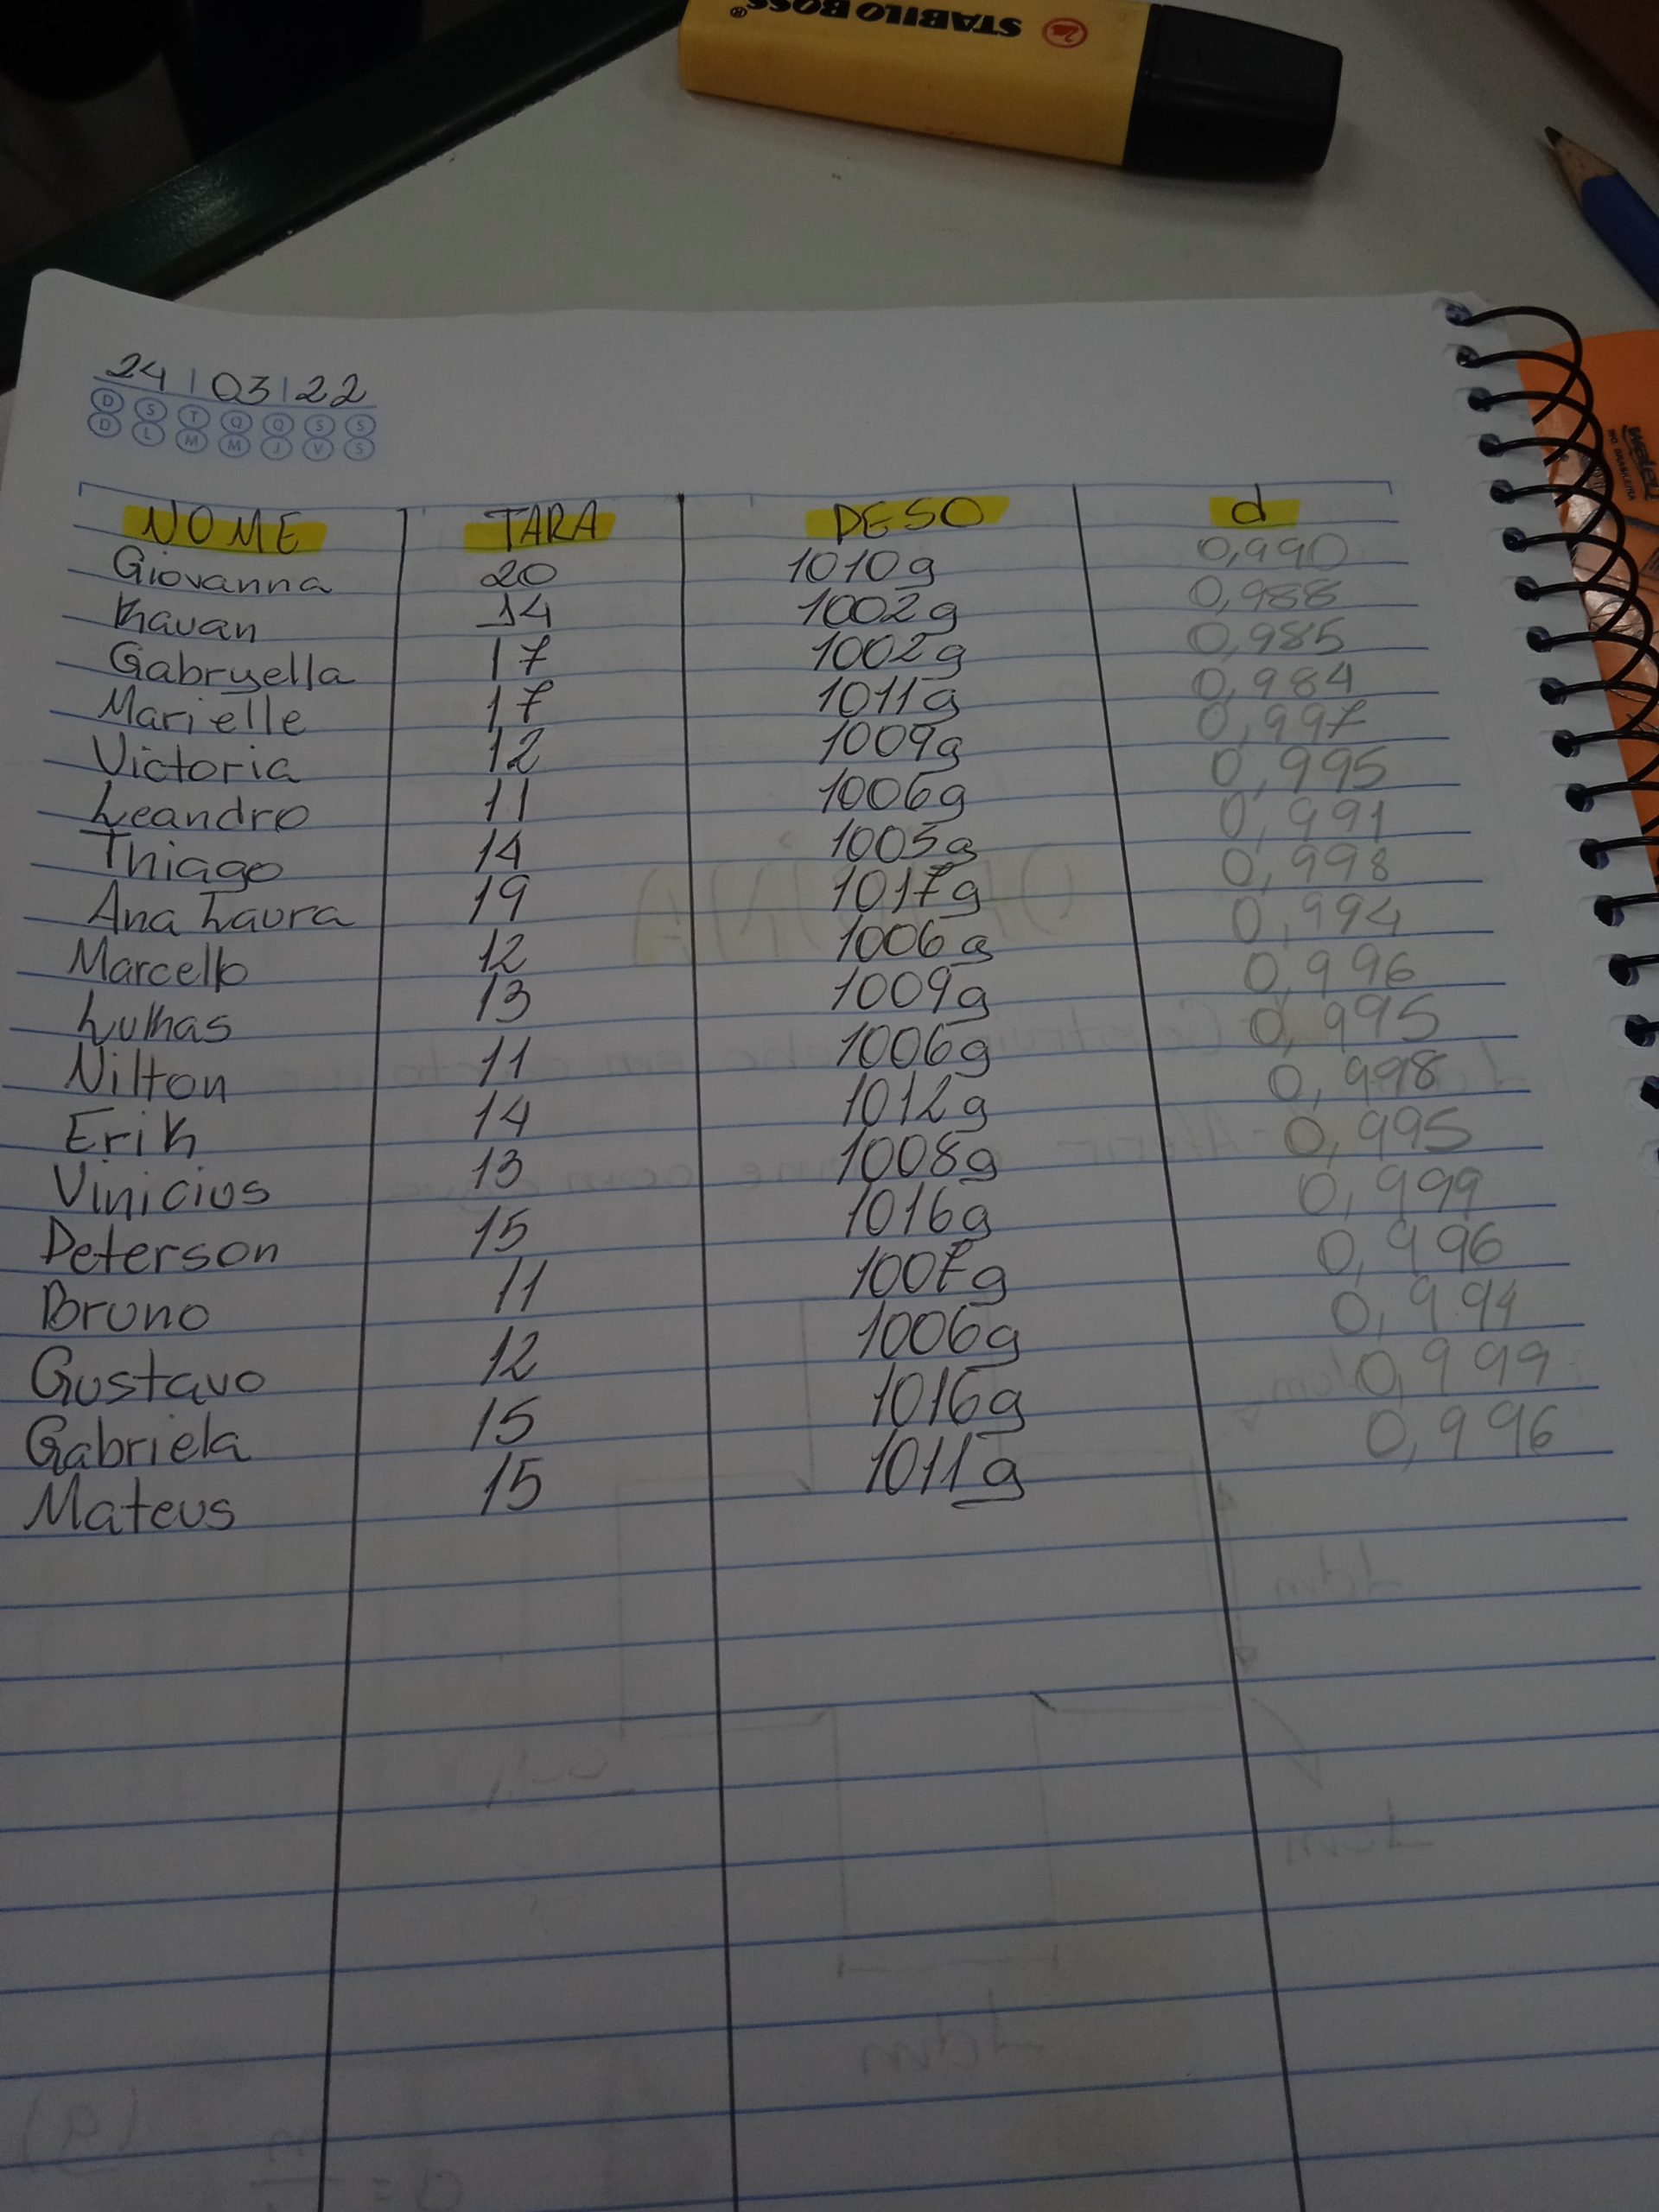 STABILO BOSS®
24 | 03 | 22
D S T Q Q S S
D L M M J V S
NOME TARA PESO d
Giovanna 20 1010g 0,990
Kauan 14 1002g 0,988
Gabryella 17 1002g 0,985
Marielle 17 1011g 0,984
Victoria 12 1009g 0,997
Leandro 11 1006g 0,995
Thiago 14 1005g 0,991
Ana Laura 19 1017g 0,998
Marcello 12 1006g 0,994
Lukhas 13 1009g 0,996
Nilton 11 1006g 0,995
Erik 14 1012g 0,998
Vinicius 13 1008g 0,995
Peterson 15 1016g 0,999
Bruno 11 1007g 0,996
Gustavo 12 1006g 0,994
Gabriela 15 1016g 0,999
Mateus 15 1011g 0,996